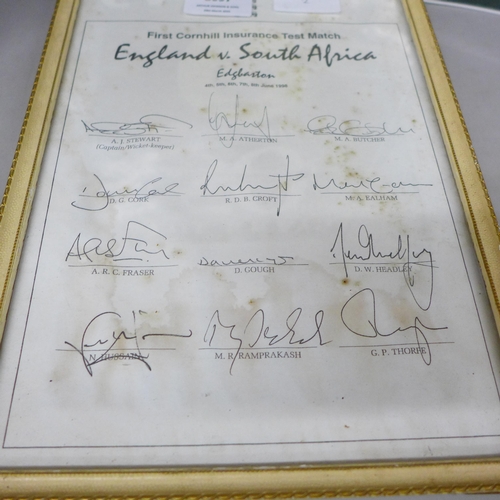 First Cornhill Insurance Test Match
England v. South Africa
Edgbaston
4th, 5th, 6th, 7th, 8th June 1998
A. J. STEWART M. A. ATHERTON M. A. BUTCHER
(Captain/Wicket-keeper)
D. G. CORK R. D. B. CROFT M. A. EALHAM
A. R. C. FRASER D. GOUGH D. W. HEADLEY
N. HUSSAIN M. R. RAMPRAKASH G. P. THORPE